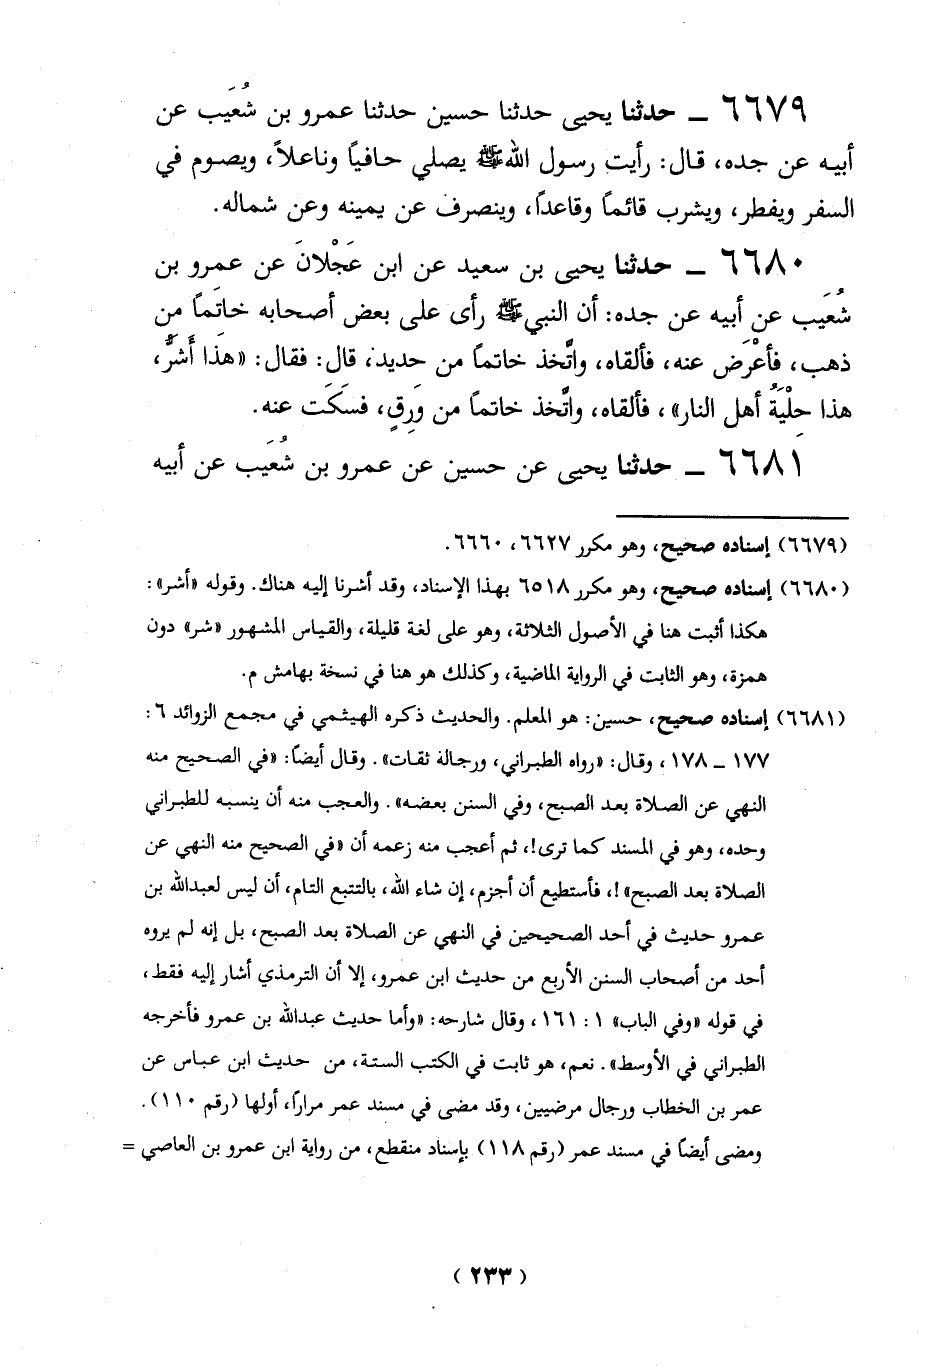 ٦٦٧٩ ـ حدثنا يحيى حدثنا حسين حدثنا عمرو بن شُعَيب عن
أبيه عن جده، قال: رأيت رسول الله ﷺ يصلي حافياً وناعلاً، ويصوم في
السفر ويفطر، ويشرب قائماً وقاعداً، وينصرف عن يمينه وعن شماله.
٦٦٨٠ ـ حدثنا يحيى بن سعيد عن ابن عَجْلانَ عن عمرو بن
شُعَيب عن أبيه عن جده: أن النبي ﷺ رأى على بعض أصحابه خاتَماً من
ذهب، فأعْرَض عنه، فألقاه، واتَّخذ خاتماً من حديد، قال: فقال: «هذا أَشَرُّ،
هذا حِلْيَةُ أهل النار»، فألقاه، واتَّخذ خاتماً من وَرِقٍ، فسَكَت عنه.
٦٦٨١ ـ حدثنا يحيى عن حسين عن عمرو بن شُعَيب عن أبيه
(٦٦٧٩) إسناده صحيح، وهو مكرر ٦٦٢٧، ٦٦٦٠.
(٦٦٨٠) إسناده صحيح، وهو مكرر ٦٥١٨ بهذا الإسناد، وقد أشرنا إليه هناك. وقوله «أشر»:
هكذا أثبت هنا في الأصول الثلاثة، وهو على لغة قليلة، والقياس المشهور «شر» دون
همزة، وهو الثابت في الرواية الماضية، وكذلك هو هنا في نسخة بهامش م.
(٦٦٨١) إسناده صحيح، حسين: هو المعلم. والحديث ذكره الهيثمي في مجمع الزوائد ٦:
١٧٧ ـ ١٧٨، وقال: «رواه الطبراني، ورجالة ثقات». وقال أيضاً: «في الصحيح منه
النهي عن الصلاة بعد الصبح، وفي السنن بعضه». والعجب منه أن ينسبه للطبراني
وحده، وهو في المسند كما ترى!، ثم أعجب منه زعمه أن «في الصحيح منه النهي عن
الصلاة بعد الصبح»!، فأستطيع أن أجزم، إن شاء الله، بالتتبع التام، أن ليس لعبدالله بن
عمرو حديث في أحد الصحيحين في النهي عن الصلاة بعد الصبح، بل إنه لم يروه
أحد من أصحاب السنن الأربع من حديث ابن عمرو، إلا أن الترمذي أشار إليه فقط،
في قوله «وفي الباب» ١: ١٦١، وقال شارحه: «وأما حديث عبدالله بن عمرو فأخرجه
الطبراني في الأوسط». نعم، هو ثابت في الكتب الستة، من حديث ابن عباس عن
عمر بن الخطاب ورجال مرضيين، وقد مضى في مسند عمر مراراً، أولها (رقم ١١٠).
ومضى أيضاً في مسند عمر (رقم ١١٨) بإسناد منقطع، من رواية ابن عمرو بن العاصي =
(٢٣٣)